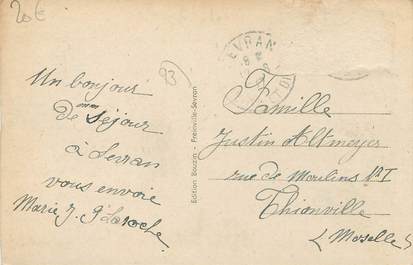 20€
93
SEVRAN
Un bonjour
de séjour
à Sevran
vous envoie
Marie J. Laroche
Edition Bouzin - Freinville-Sevran
Famille
Justin Altmeyer
rue de Moulins
Thionville
(Moselle)